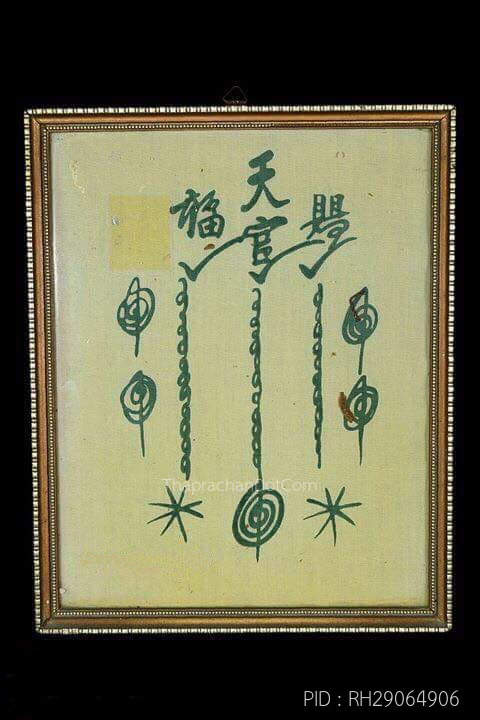 天官賜福
ThaprachanDotCom
PID : RH29064906